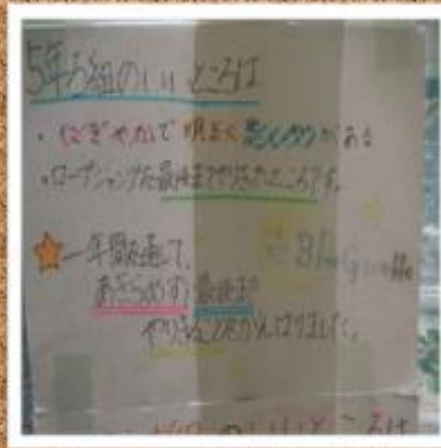 5年3組のいいところは
・にぎやかで明るく
がある
・ロープジャンプを最後までやりきったところです。
一年間を通して、
あきらめず最後まで
やりきることをがんばりました。
のいいところは